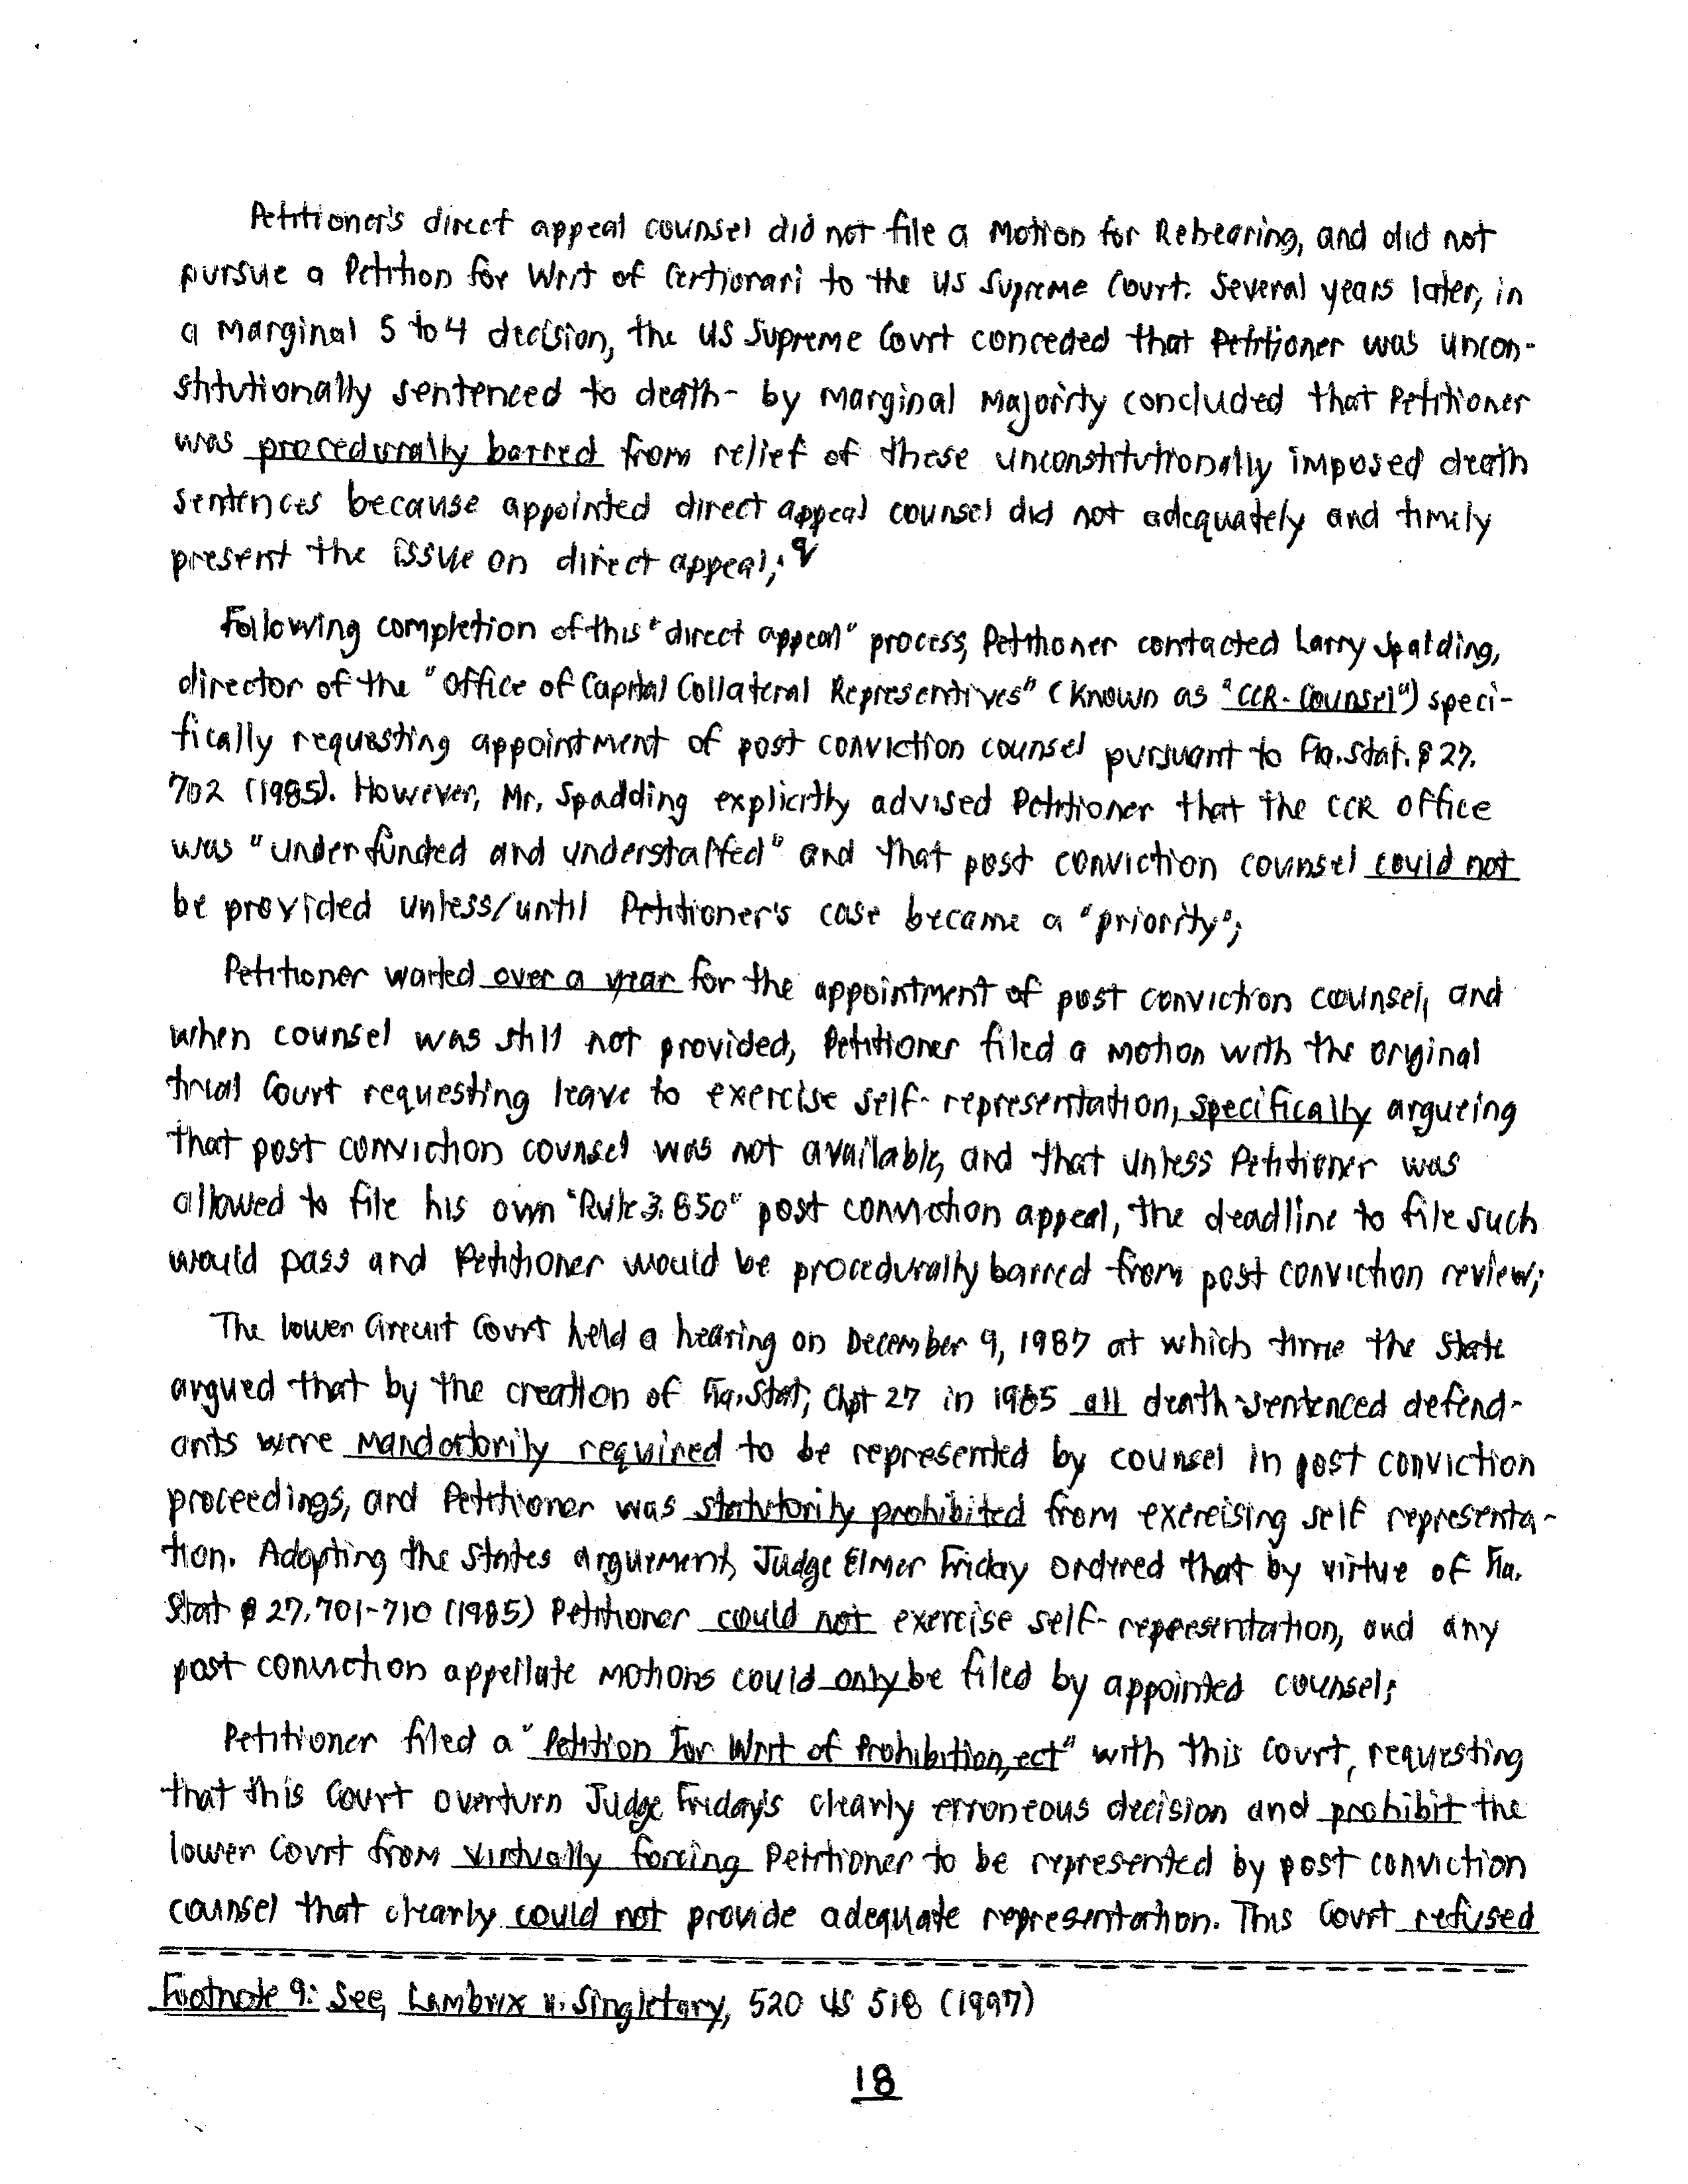 Petitioner's direct appeal counsel did not file a Motion for Rehearing, and did not
pursue a Petition for Writ of Certiorari to the US Supreme Court. Several years later, in
a marginal 5 to 4 decision, the US Supreme Court conceded that Petitioner was uncon-
stitutionally sentenced to death- by marginal majority concluded that Petitioner
was procedurally barred from relief of these unconstitutionally imposed death
sentences because appointed direct appeal counsel did not adequately and timely
present the issue on direct appeal; 9
Following completion of this "direct appeal" process, Petitioner contacted Larry Spalding,
director of the "Office of Capital Collateral Representives" (known as "CCR-Counsel") speci-
fically requesting appointment of post conviction counsel pursuant to Fla. Stat. § 27.
702 (1985). However, Mr. Spadding explicitly advised Petitioner that the CCR office
was "underfunded and understaffed" and that post conviction counsel could not
be provided unless/until Petitioner's case became a "priority";
Petitioner waited over a year for the appointment of post conviction counsel, and
when counsel was still not provided, Petitioner filed a motion with the original
trial Court requesting leave to exercise self-representation, specifically argueing
that post conviction counsel was not available, and that unless Petitioner was
allowed to file his own "Rule 3.850" post conviction appeal, the deadline to file such
would pass and Petitioner would be procedurally barred from post conviction review;
The lower Circuit Court held a hearing on December 9, 1987 at which time the State
argued that by the creation of Fla. Stat, Chpt 27 in 1985 all death-sentenced defend-
ants were mandatorily required to be represented by counsel in post conviction
proceedings, and Petitioner was statutorily prohibited from exercising self representa-
tion. Adopting the States arguement, Judge Elmer Friday ordered that by virtue of Fla.
Stat § 27.701-710 (1985) Petitioner could not exercise self-representation, and any
post conviction appellate motions could only be filed by appointed counsel;
Petitioner filed a "Petition For Writ of Prohibition, ect" with this Court, requesting
that this Court overturn Judge Friday's clearly erroneous decision and prohibit the
lower Court from virtually forcing Petitioner to be represented by post conviction
counsel that clearly could not provide adequate representation. This Court refused
Footnote 9: See, Lambrix v. Singletary, 520 US 518 (1997)
18